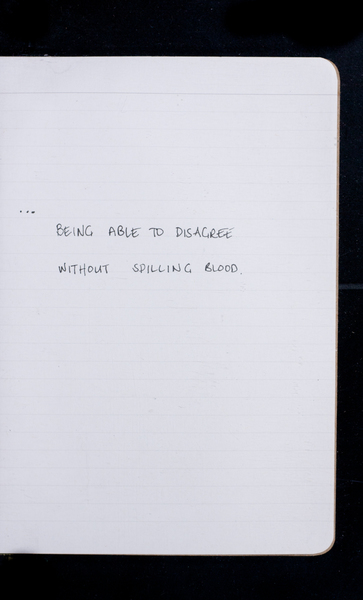 ...
BEING ABLE TO DISAGREE
WITHOUT SPILLING BLOOD.